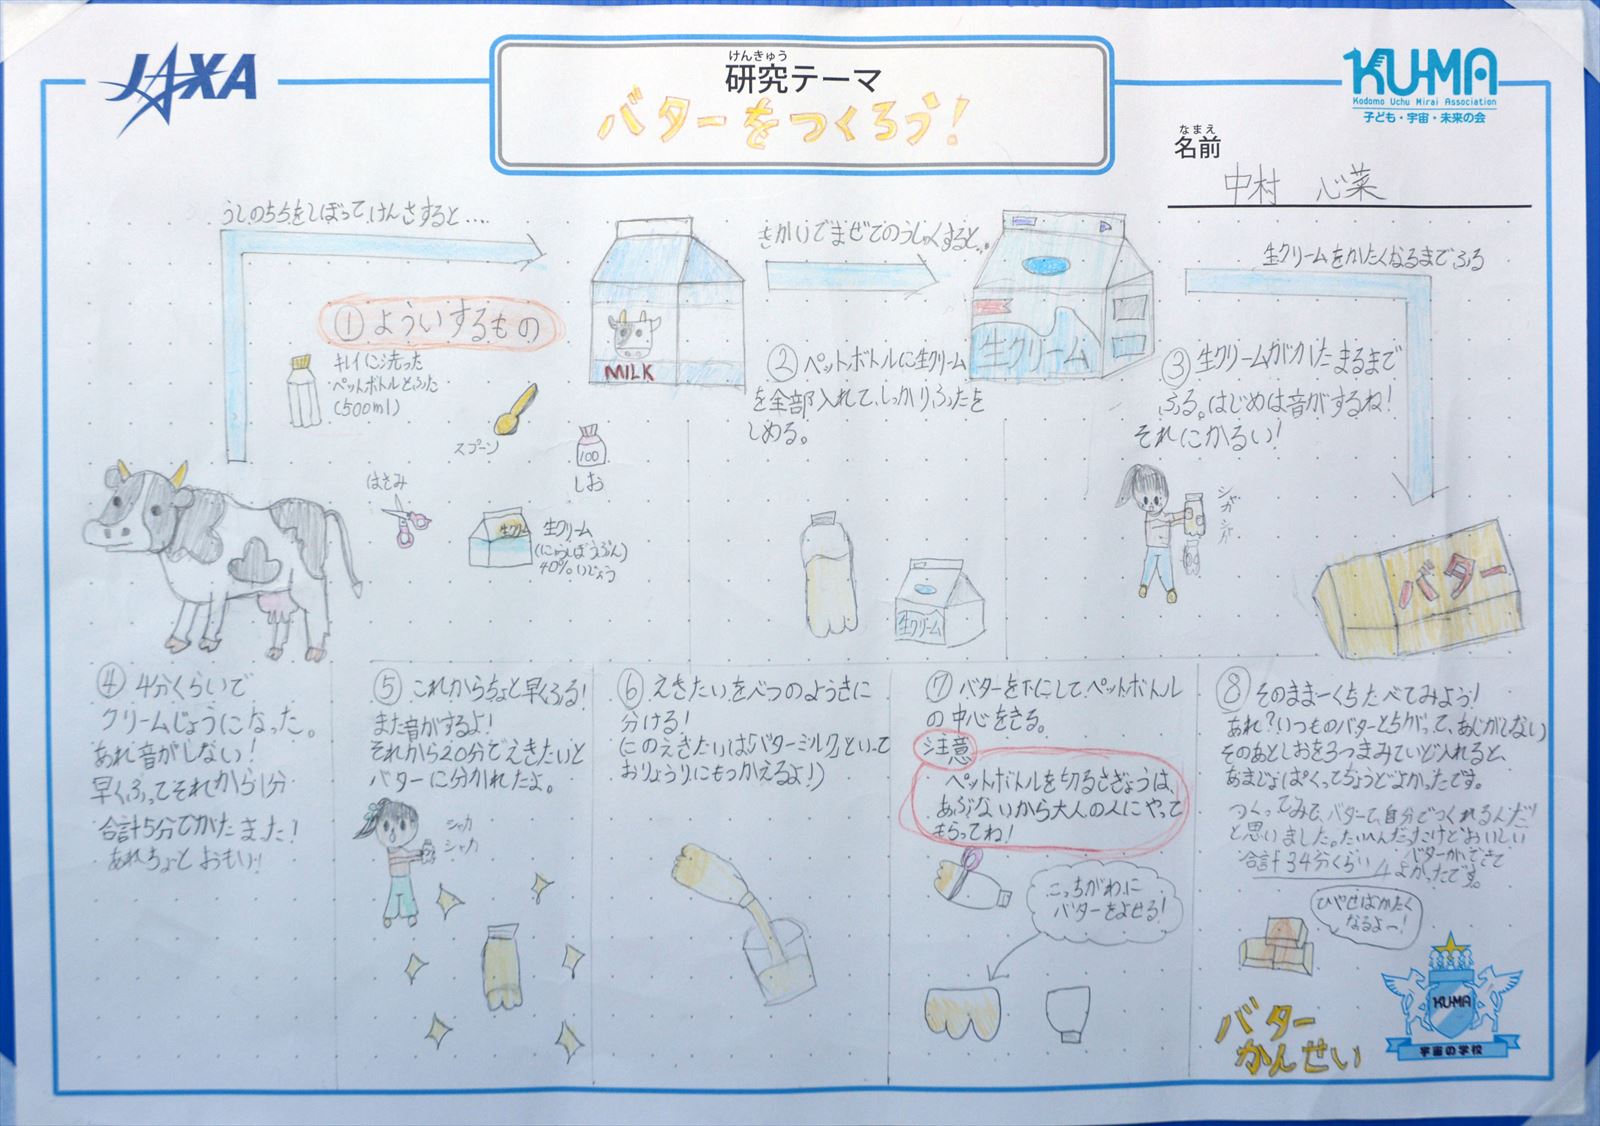 JAXA
けんきゅう
研究テーマ
バターをつくろう!
KU-MA
Kodomo Uchu Mirai Association
子ども・宇宙・未来の会
なまえ
名前
中村 心菜
うしのちちをしぼって、けんさすると....
きかいでまぜてのうしゅくすると..
生クリームをかたくなるまでふる
MILK
生クリーム
バター
①よういするもの
キレイに洗った
ペットボトルとふた
(500ml)
スプーン
100
しお
はさみ
生クリーム
生クリーム
(にゅうしぼうぶん)
40%いじょう
②ペットボトルに生クリーム
を全部入れて、しっかりふたを
しめる。
生クリーム
③生クリームがかたまるまで
ふる。はじめは音がするね!
それにかるい!
シャカ
シャカ
④4分くらいで
クリームじょうになった。
あれ音がしない!
早くふってそれから1分
合計5分でかたまった!
あれちょとおもい!
⑤これからちょと早くふる!
また音がするよ!
それから20分でえきたいと
バターに分かれたよ。
シャカ
シャカ
⑥えきたいをべつのようきに
分ける!
(このえきたいは「バターミルク」といって
おりょうりにもつかえるよ!)
⑦バターを下にして、ペットボトル
の中心をきる。
注意
ペットボトルを切るさぎょうは、
あぶないから大人の人にやって
もらってね!
こっちがわに
バターをよせる!
⑧そのまま一くちたべてみよう!
あれ?(いつものバターとちがって、あじがしない)
そのあとしおを3つまみていど入れると、
あまじょぱくってちょうどよかったです。
つくってみて、バターて、自分でつくれるんだ!
と思いました。たいへんだったけどおいしい
バターができて
よかったです。
合計34分くらい
ひやせばかたく
なるよー!
バター
かんせい
KU-MA
宇宙の学校